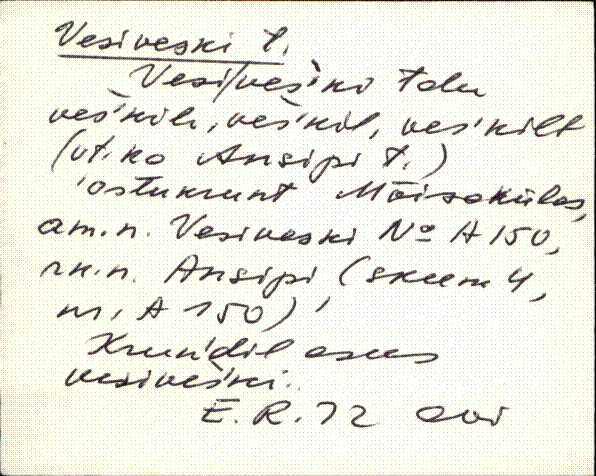 Vesiveski t.
Vesi/veśki talu
veśkile, veśkil, veśkilt
(vt. ka Ansipi t.)
'ostukrunt Mõisakülas,
am.n. Vesiveski No A 150,
rk.n. Ansipi (skeem 4,
nr. A 150)
Krundil asus
vesiveśki.
E.R. 72